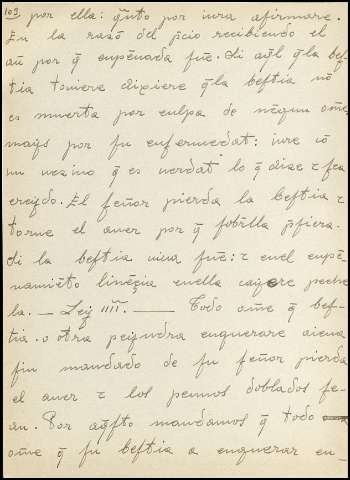 103 por ella: quãto por iura afirmare.
En la razõ del p̃cio recibiendo el
añ por q̃ enpẽnada fue. Si aq̃l q̃la bes-
tia touiere dixiere q̃la beſtia nõ
es muerta por culpa de nẽgun oñe
mays por ſu enfermedat: iure cõ
un uezino q̃ es uerdat lo q̃ dize ⁊ ſea
creydo. El ſeñor pierda la beſtia ⁊
torne el auer por q̃ ſobrella p̃ſiera.
Si la beſtia uiua fue: ⁊ enel enpẽ-
namiẽto liuẽçia enella cayere peche
la. — Ley IIIIª. — Todo oñe q̃ beſ-
tia o otra peyndra enguerare aiena
ſin mandado de ſu ſeñor pierda
el auer ⁊ los pennos doblados ſe-
an. Por aq̃ſto mandamos q̃ todo
oñe q̃ ſu beſtia a enguerar en-